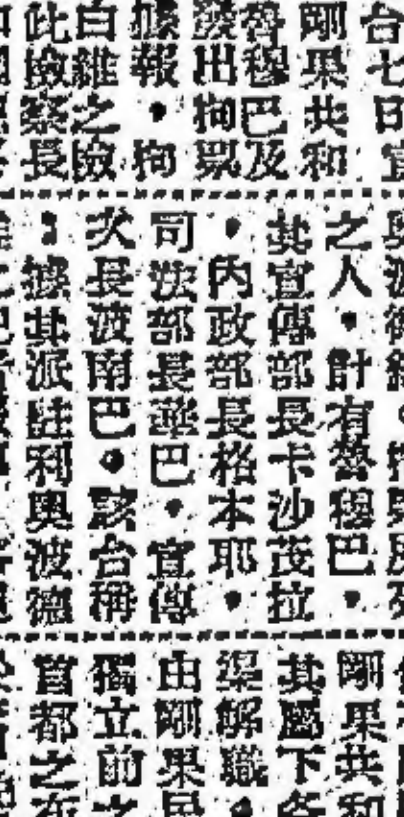 台七日宣
剛果共和
魯穆巴及
發出拘票
據報，拘
白維之檢
此檢察長
之人，計有魯穆巴，
其宣傳部長卡沙茂拉
，內政部長格本耶，
司法部長華巴，宣傳
次長波南巴。該台稱
：據其派駐利奧波德
剛果共和
其屬下各
渠解職，
由剛果民
獨立前之
首都之布